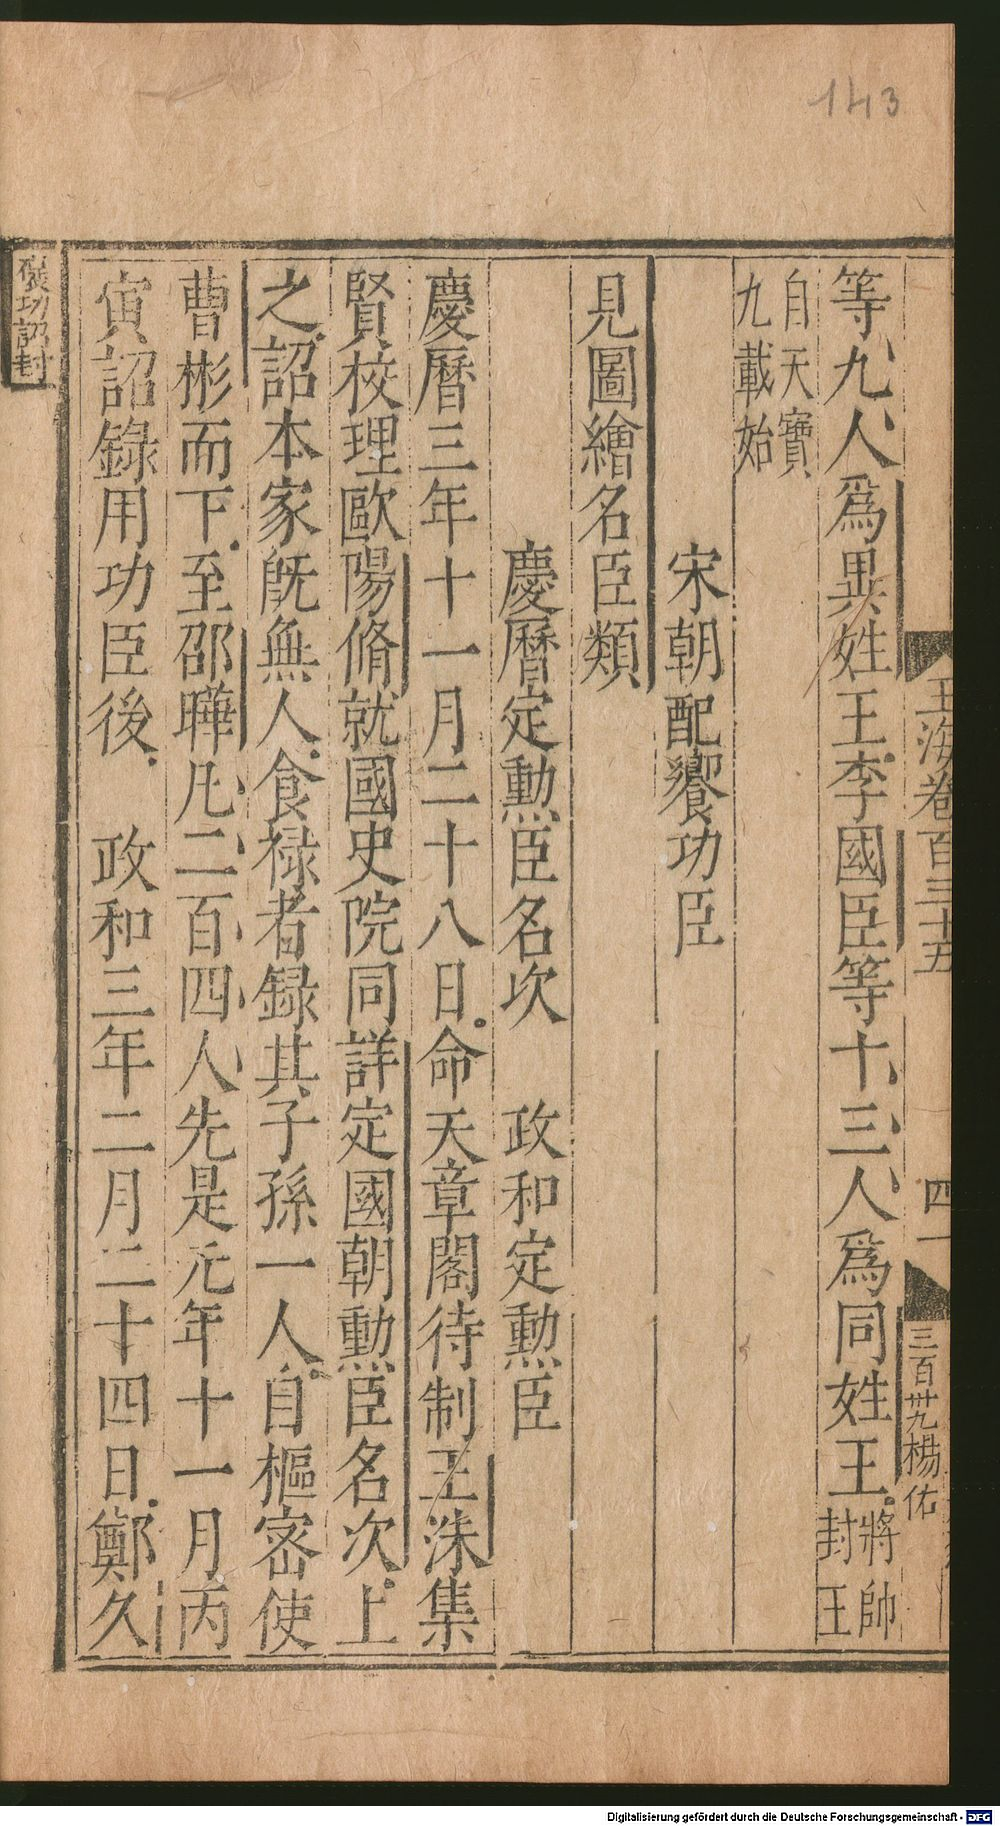 143
玉海卷百三十五
四一
三百卅九楊佑
等九人爲異姓王李國臣等十三人爲同姓王將帥
封王
自天寶
九載始
宋朝配饗功臣
見圖繪名臣類
慶曆定勲臣名次 政和定勲臣
慶曆三年十一月二十八日命天章閣待制王洙集
賢校理歐陽脩就國史院同詳定國朝勲臣名次上
之詔本家旣無人食祿者録其子孫一人自樞密使
曹彬而下至邵曄凡二百四人先是元年十一月丙
寅詔錄用功臣後 政和三年二月二十四日鄭久
襃功詔封
Digitalisierung gefördert durch die Deutsche Forschungsgemeinschaft - DFG